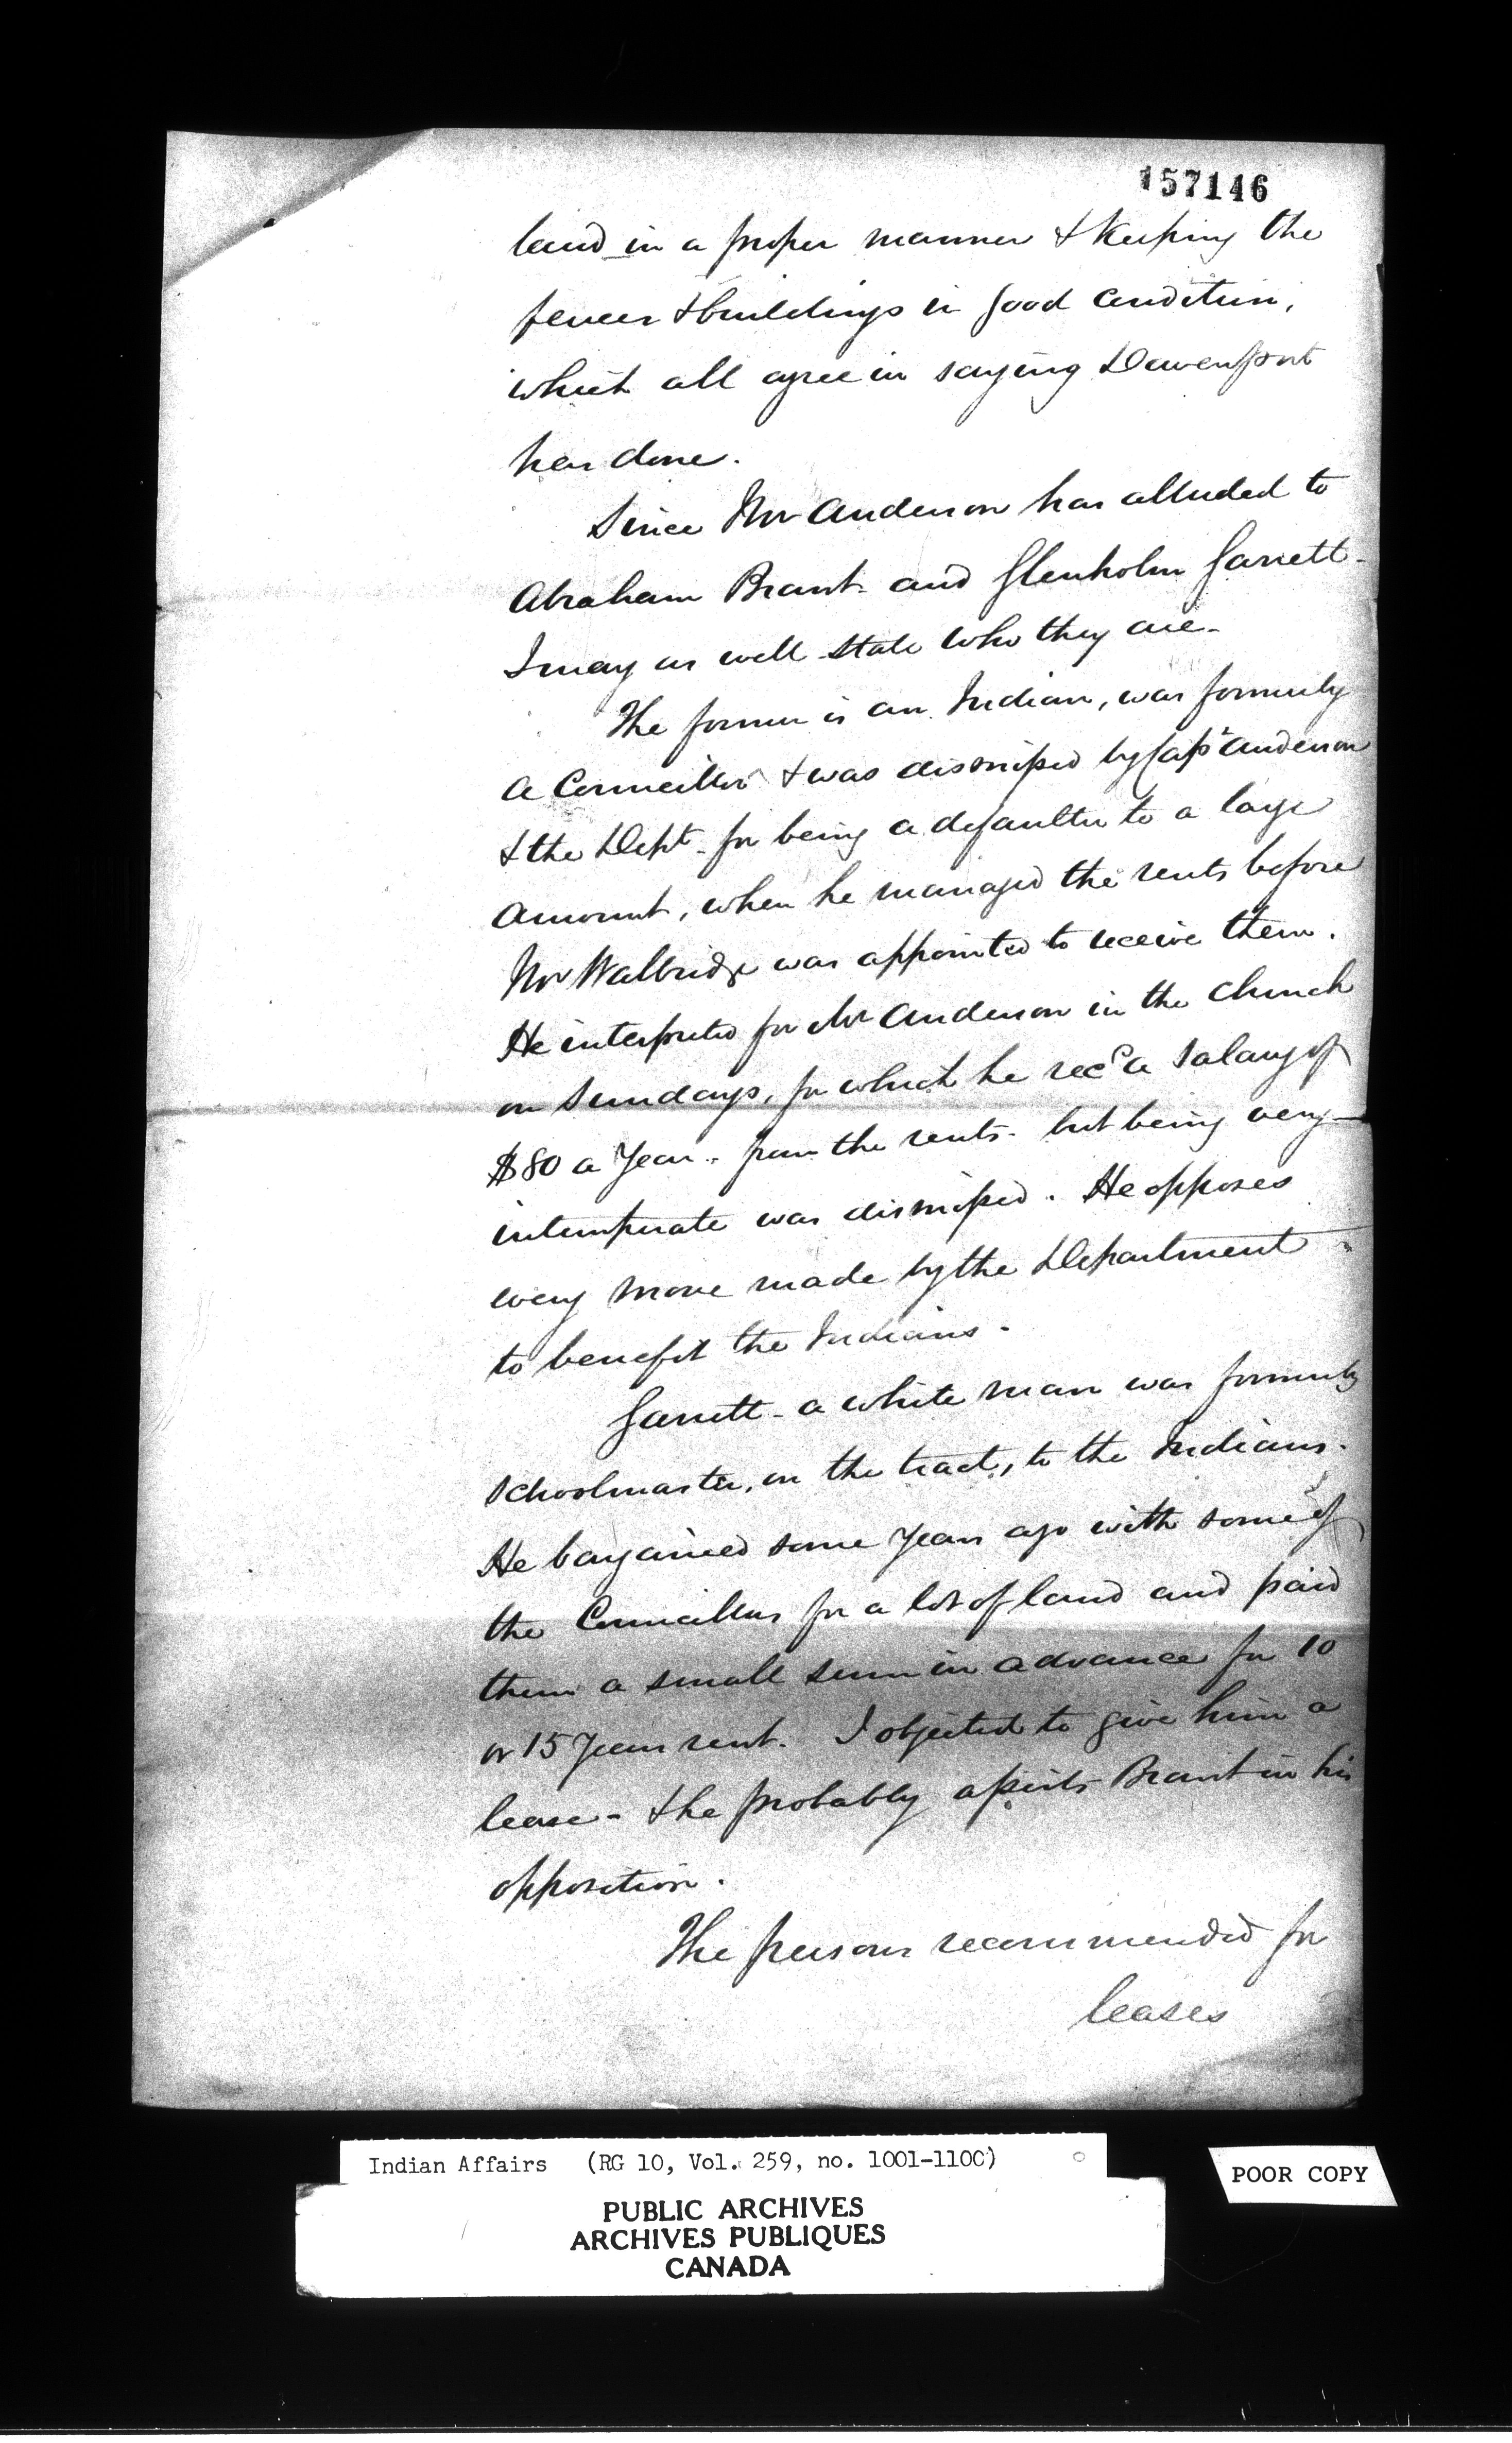 157146
land in a proper manner & keeping the
fences & buildings in good condition,
which all agree in saying Davenport
has done.
Since Mr Anderson has alluded to
Abraham Brant and Glenholm Garrett -
I may as well state who they are -
The former is an Indian, was formerly
a Councillor & was dismissed by Capt Anderson
& the Dept - for being a defaulter to a large
amount, when he managed the rents before
Mr Walbridge was appointed to receive them.
He interpreted for Mr Anderson in the church
on Sundays, for which he recd a salary of
$80 a year - from the rents - but being very
intemperate was dismissed. He opposes
every move made by the Department
to benefit the Indians -
Garrett - a white man was formerly
schoolmaster, on the tract, to the Indians.
He bargained some years ago with some of
the Councillors for a lot of land and paid
them a small sum in advance for 10
or 15 years rent. I objected to give him a
lease - & he probably assists Brant in his
opposition.
The persons recommended for
leases
Indian Affairs (RG 10, Vol. 259, no. 1001-1100)
PUBLIC ARCHIVES
ARCHIVES PUBLIQUES
CANADA
POOR COPY